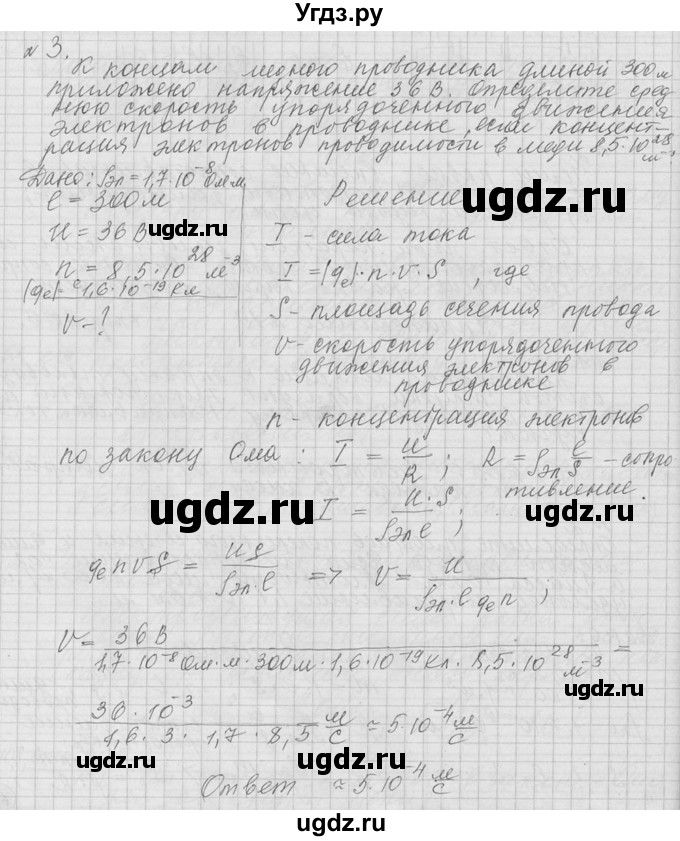 Угдз.ру
№3.
К концам медного проводника длиной 300м
приложено напряжение 36В. Определите сред
нюю скорость упорядоченного движения
электронов в проводнике, если концент-
рация электронов проводимости в меди 8,5·10²⁸ м⁻³.
Дано: ρэл=1,7·10⁻⁸ Ом·м
Решение
ugdz.ru
ℓ = 300м
U = 36В
I - сила тока
n = 8,5·10²⁸ м⁻³
I = |qe|·n·v·S , где
|qe|=1,6·10⁻¹⁹ Кл
S - площадь сечения провода
v - ?
v - скорость упорядоченного
движения электронов в
проводнике
n - концентрация электронов
по закону Ома : I = U/R ; R = ρэл ℓ/S - сопро
тивление.
ugdz.ru ugdz.ru
I = U·S/ρэл·ℓ ;
qe n v S = U S/ρэл·ℓ => v = U/ρэл·ℓ qe n ;
v = 36В/1,7·10⁻⁸ Ом·м·300м·1,6·10⁻¹⁹ Кл·8,5·10²⁸ м⁻³ =
ugdz.ru
36·10⁻³/1,6·3·1,7·8,5 м/с ≈ 5·10⁻⁴ м/с
ugdz.ru
Ответ ≈ 5·10⁻⁴ м/с
ugdz.ru ugdz.ru
ugdz.ru